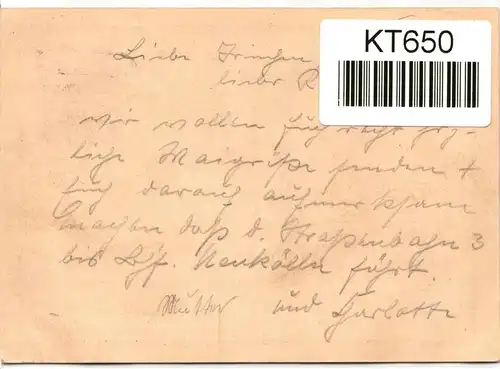 KT650
Liebe Trinchen,
lieber R
wir wollen Euch recht herz-
liche Maigrüße senden +
Euch darauf aufmerksam
machen daß d. Straßenbahn 3
bis Bhf. Neukölln führt.
Mutter und Charlotte